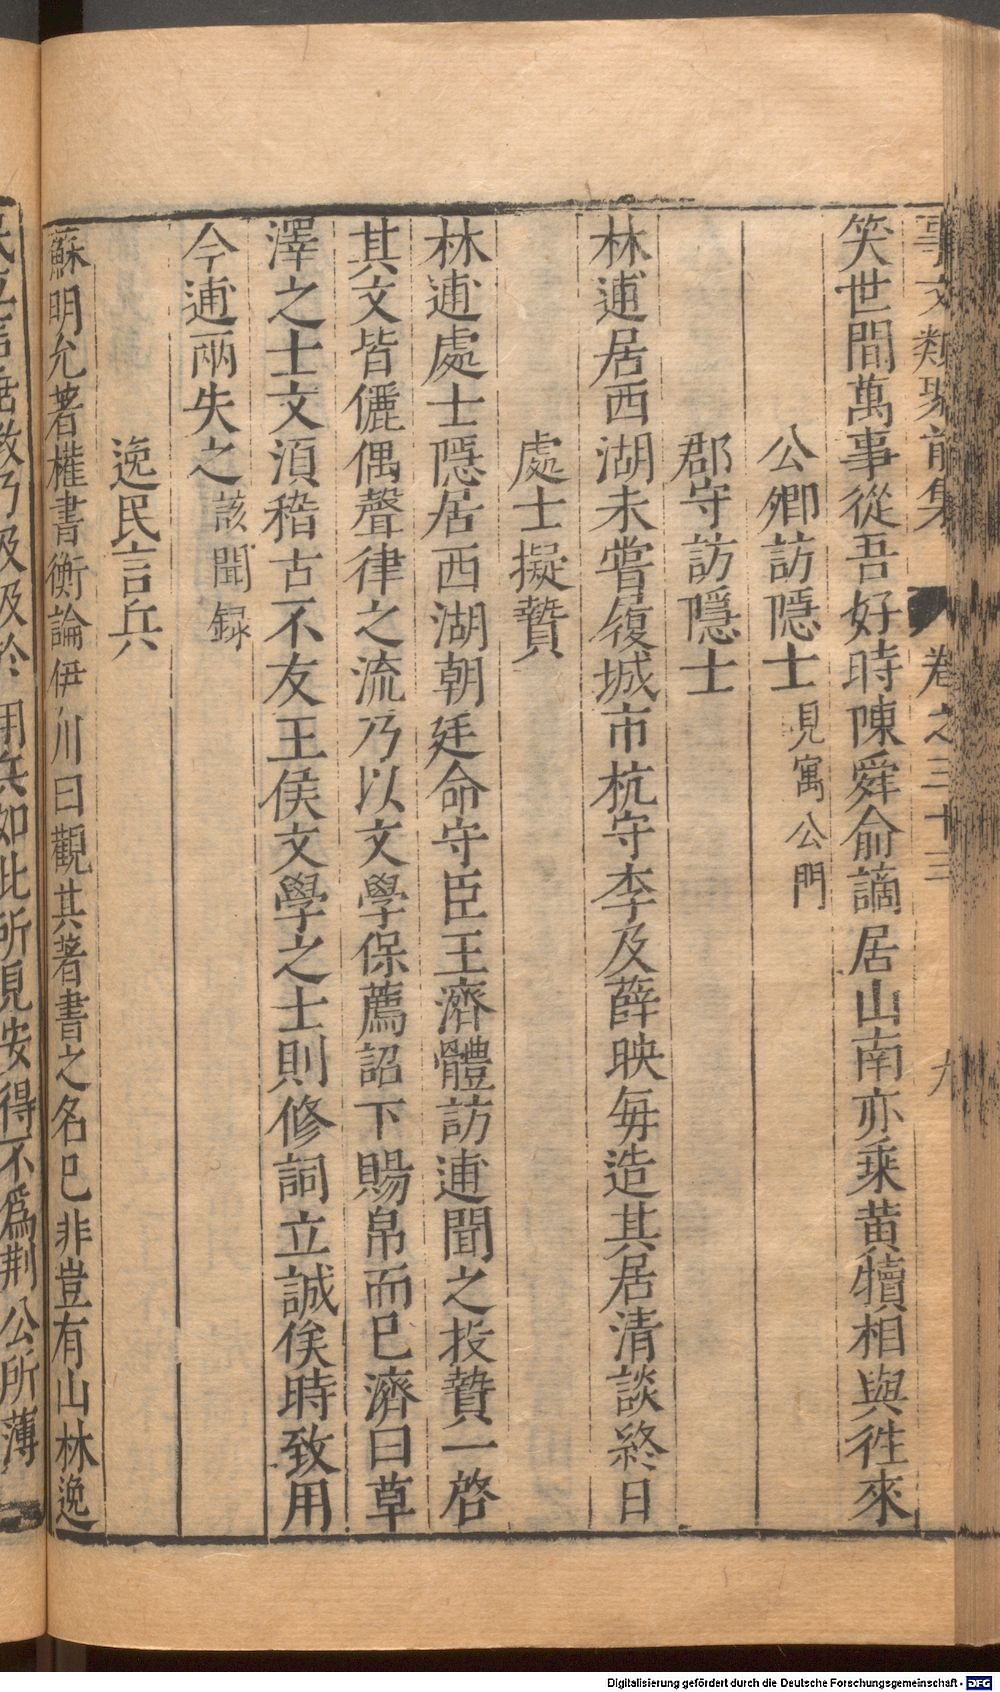 事文類聚前集 卷之三十三 九
笑世間萬事從吾好時陳舜俞謫居山南亦乘黄犢相與徃來
公卿訪隱士見寓公門
郡守訪隱士
林逋居西湖未嘗復城市杭守李及薛映每造其居清談終日
處士擬贄
林逋處士隱居西湖朝廷命守臣王濟體訪逋聞之投贄一啓
其文皆儷偶聲律之流乃以文學保薦詔下賜帛而已濟曰草
澤之士文湏稽古不友王侯文學之士則修詞立誠俟時致用
今逋兩失之該聞録
逸民言兵
蘇明允著權書衡論伊川曰觀其著書之名已非豈有山林逸
民立言垂教乃汲汲於用兵如此所見安得不爲荆公所薄
Digitalisierung gefördert durch die Deutsche Forschungsgemeinschaft - DFG